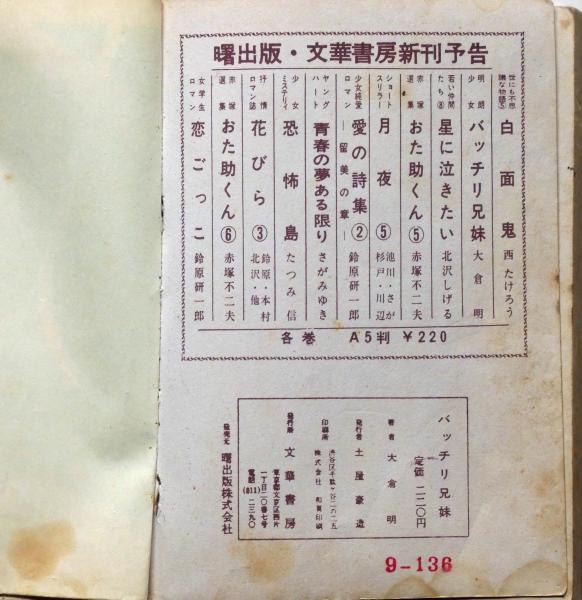 曙出版・文華書房新刊予告
世にも不思議な物語⑤ 白面鬼 西たけろう
明朗少女 バッチリ兄妹 大倉明
若い仲間たち⑧ 星に泣きたい 北沢しげる
赤塚選集 おた助くん⑤ 赤塚不二夫
ショートスリラー 月夜⑤ 池川・さが 杉戸・川辺
少女純愛ロマン 愛の詩集② ―留美の章― 鈴原研一郎
ヤングハート 青春の夢ある限り さがみゆき
少女ミステリイ 恐怖島 たつみ信
抒情ロマン誌 花びら③ 鈴原・本村 北沢・他
赤塚選集 おた助くん⑥ 赤塚不二夫
女学生ロマン 恋ごっこ 鈴原研一郎
各巻 A5判 ¥220
バッチリ兄妹
定価 二二〇円
著者 大倉明
発行者 土屋豪造
印刷所 渋谷区千駄ヶ谷二の一五
株式会社 和晃印刷
発行所 文華書房
東京都文京区西片
一丁目二〇番七号
電話(811)二三九〇
発売元 曙出版株式会社
9-136